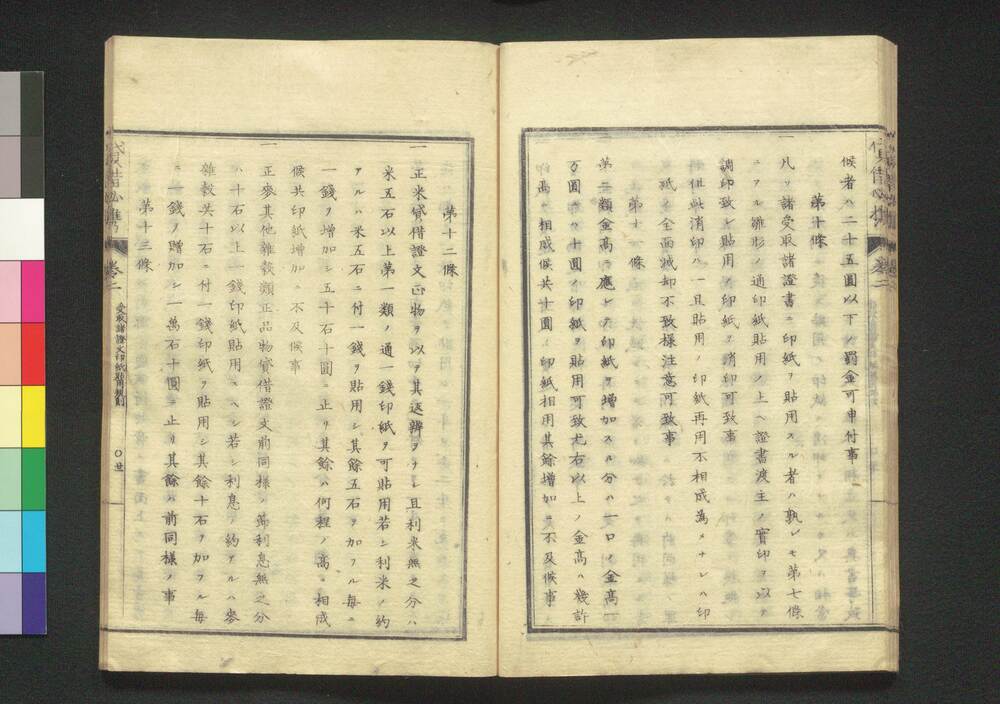 候者ハ二十五圓以下ノ罰金可申付事
第十條
一凡ソ諸受取諸證書ニ印紙ヲ貼用スル者ハ孰レモ第七條
ニアル雛形ノ通印紙貼用ノ上ヘ證書渡主ノ實印ヲ以テ
調印致シ貼用ノ印紙ヲ消印可致事
但此消印ハ一旦貼用ノ印紙再用不相成為メナレハ印
紙ノ全面滅却不致様注意可致事
第十一條
第二類金高ニ應シテ印紙ヲ増加スル分ハ一口ノ金高一
万圓ハ十圓ノ印紙ヲ貼用可致尤右以上ノ金高ハ幾許
高ニ相成候共十圓ノ印紙相用其餘増加ニ不及候事
第十二條
一正米貸借證文正物ヲ以テ其返辨ヲナシ且利米無之分ハ
米五石以上第一類ノ通一錢印紙ヲ可貼用若シ利米ノ約
アルハ米五石ニ付一錢ヲ貼用シ其餘五石ヲ加フル毎ニ
一錢ヲ増加シ五千石十圓ニ止リ其餘ハ何程ノ高ニ相成
候共印紙増加ニ不及候事
一正麥其他雜穀類正品物貸借證文前同様ノ節利息無之分
ハ十石以上一錢印紙貼用スヘシ若シ利息ノ約アルハ麥
雜穀共十石ニ付一錢印紙ヲ貼用シ其餘十石ヲ加フル毎
ニ一錢ヲ増加シ一萬石十圓ニ止リ其餘ハ前同様ノ事
第十三條
貸借必携
巻二
受取諸證文印紙貼用規則
〇廿